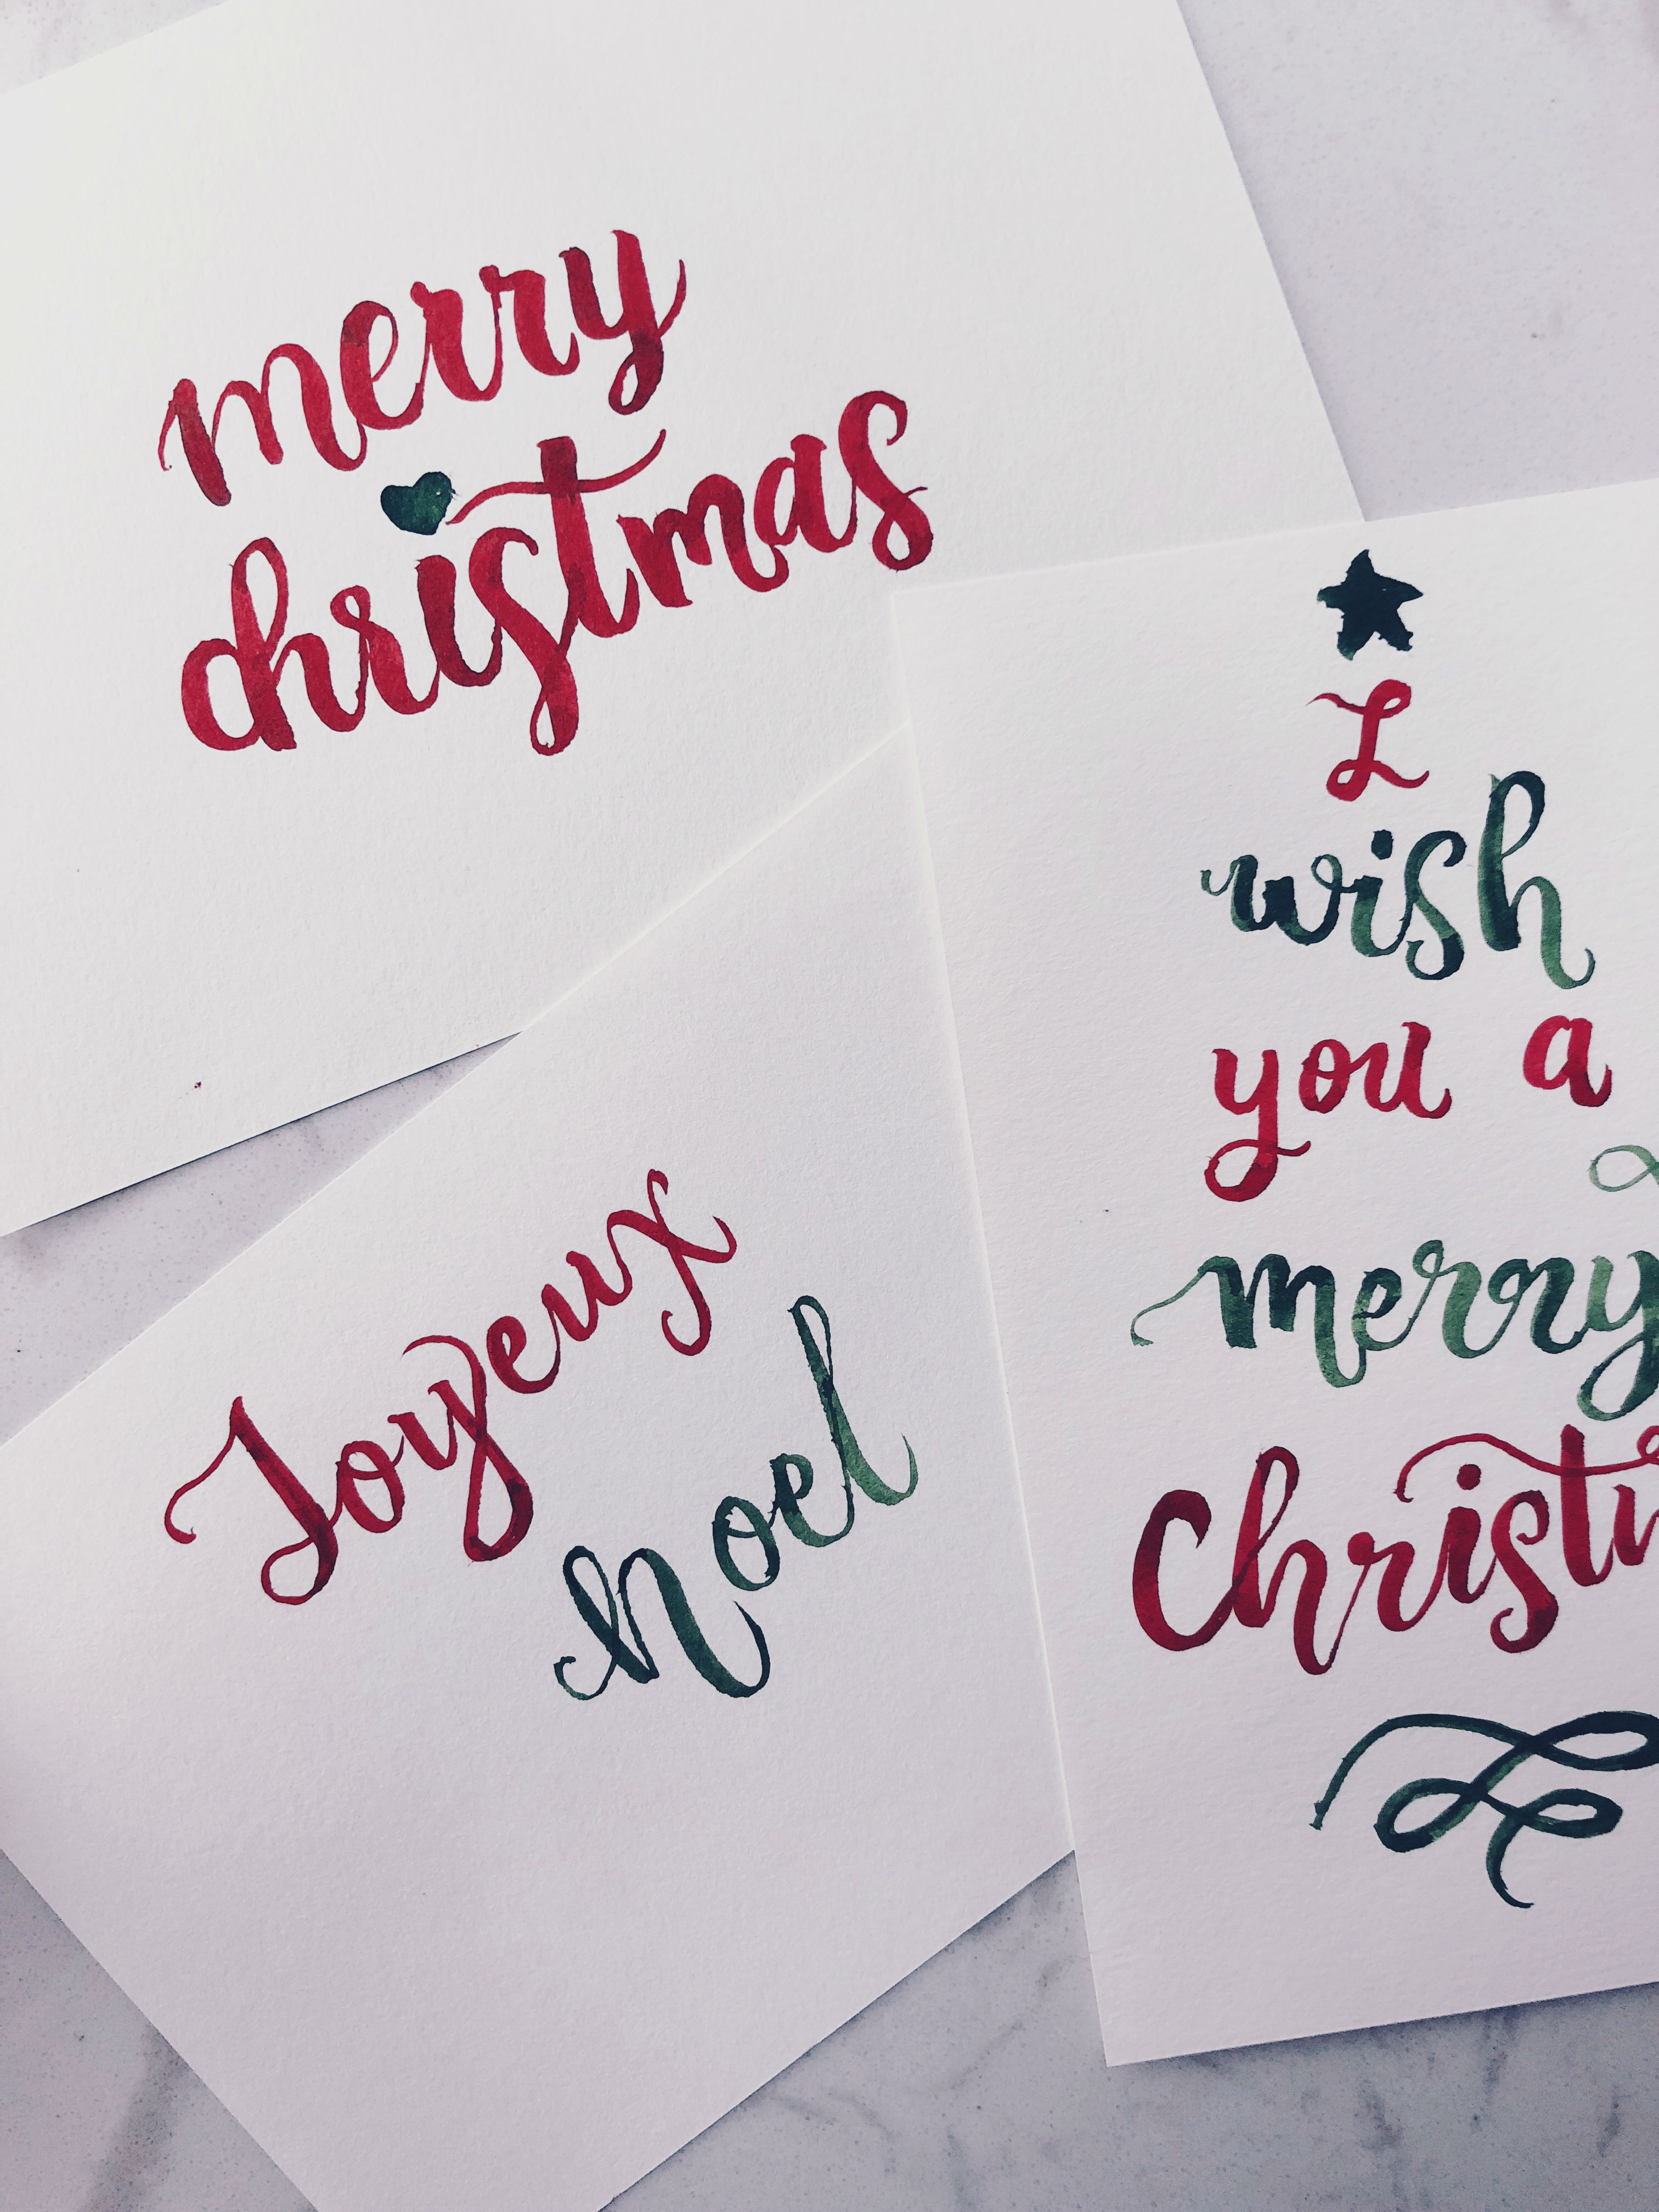 merry
christmas
Joyeux
Noel
I
wish
you a
merry
Christm